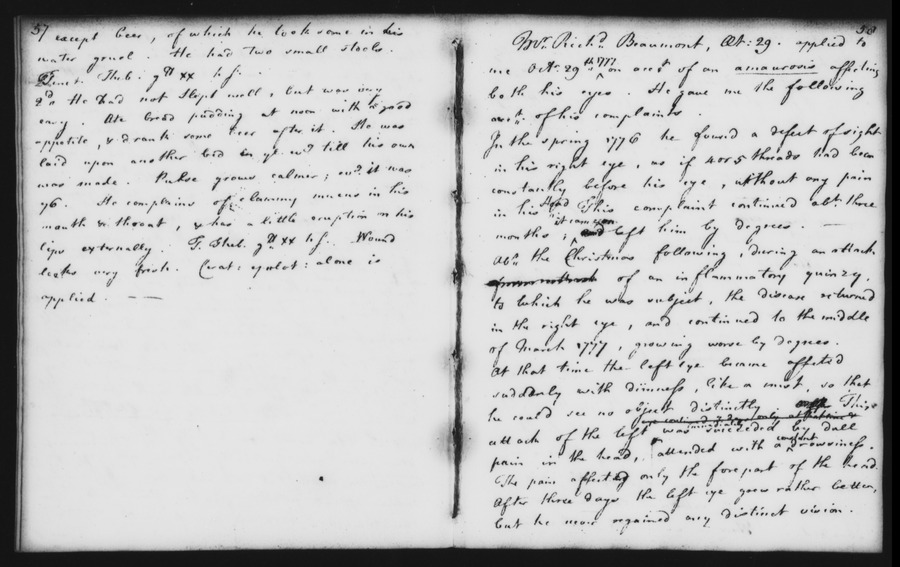 57
except beer, of which he took some in his
water gruel. He had two small stools.
Tinct. Theb: gtt xx h. s.
2d. He had not slept well, but was very
easy. Ate bread pudding at noon with a good
appetite, & drank some beer after it. He was
laid upon another bed in ye. till his own
was made. Pulse grows calmer; it was
96. He complains of clammy mucus in his
mouth & throat, & has a little eruption on his
lips externally. T. Theb. gtt xx h s. Wound
looks very fresh. Cerat: epulot: alone is
applied. — —
58
Mr. Richd. Beaumont, Æt: 29. applied to
me Oct: 29th 1777 on acct of an amaurosis affecting
both his eyes. He gave me the following
acct. of his complaints.
In the spring 1776 he found a defect of sight
in his right eye, as if 4 or 5 threads had been
constantly before his eye, without any pain
in his head This complaint continued abt. three
months; it ran on and left him by degrees. —
Abt. the Christmas following, during an attack
of an inflammatory quinzy,
to which he was subject, the disease returned
in the right eye, and continued to the middle
of March 1777, growing worse by degrees.
At that time the left eye became affected
suddenly with dimness, like a mist, so that
he could see no object distinctly This
attack of the left was immediately succeeded by dull
pain in the head, attended with a constant drowsiness.
The pain affected only the forepart of the head.
After three days the left eye grew rather better,
but he never regained any distinct vision.